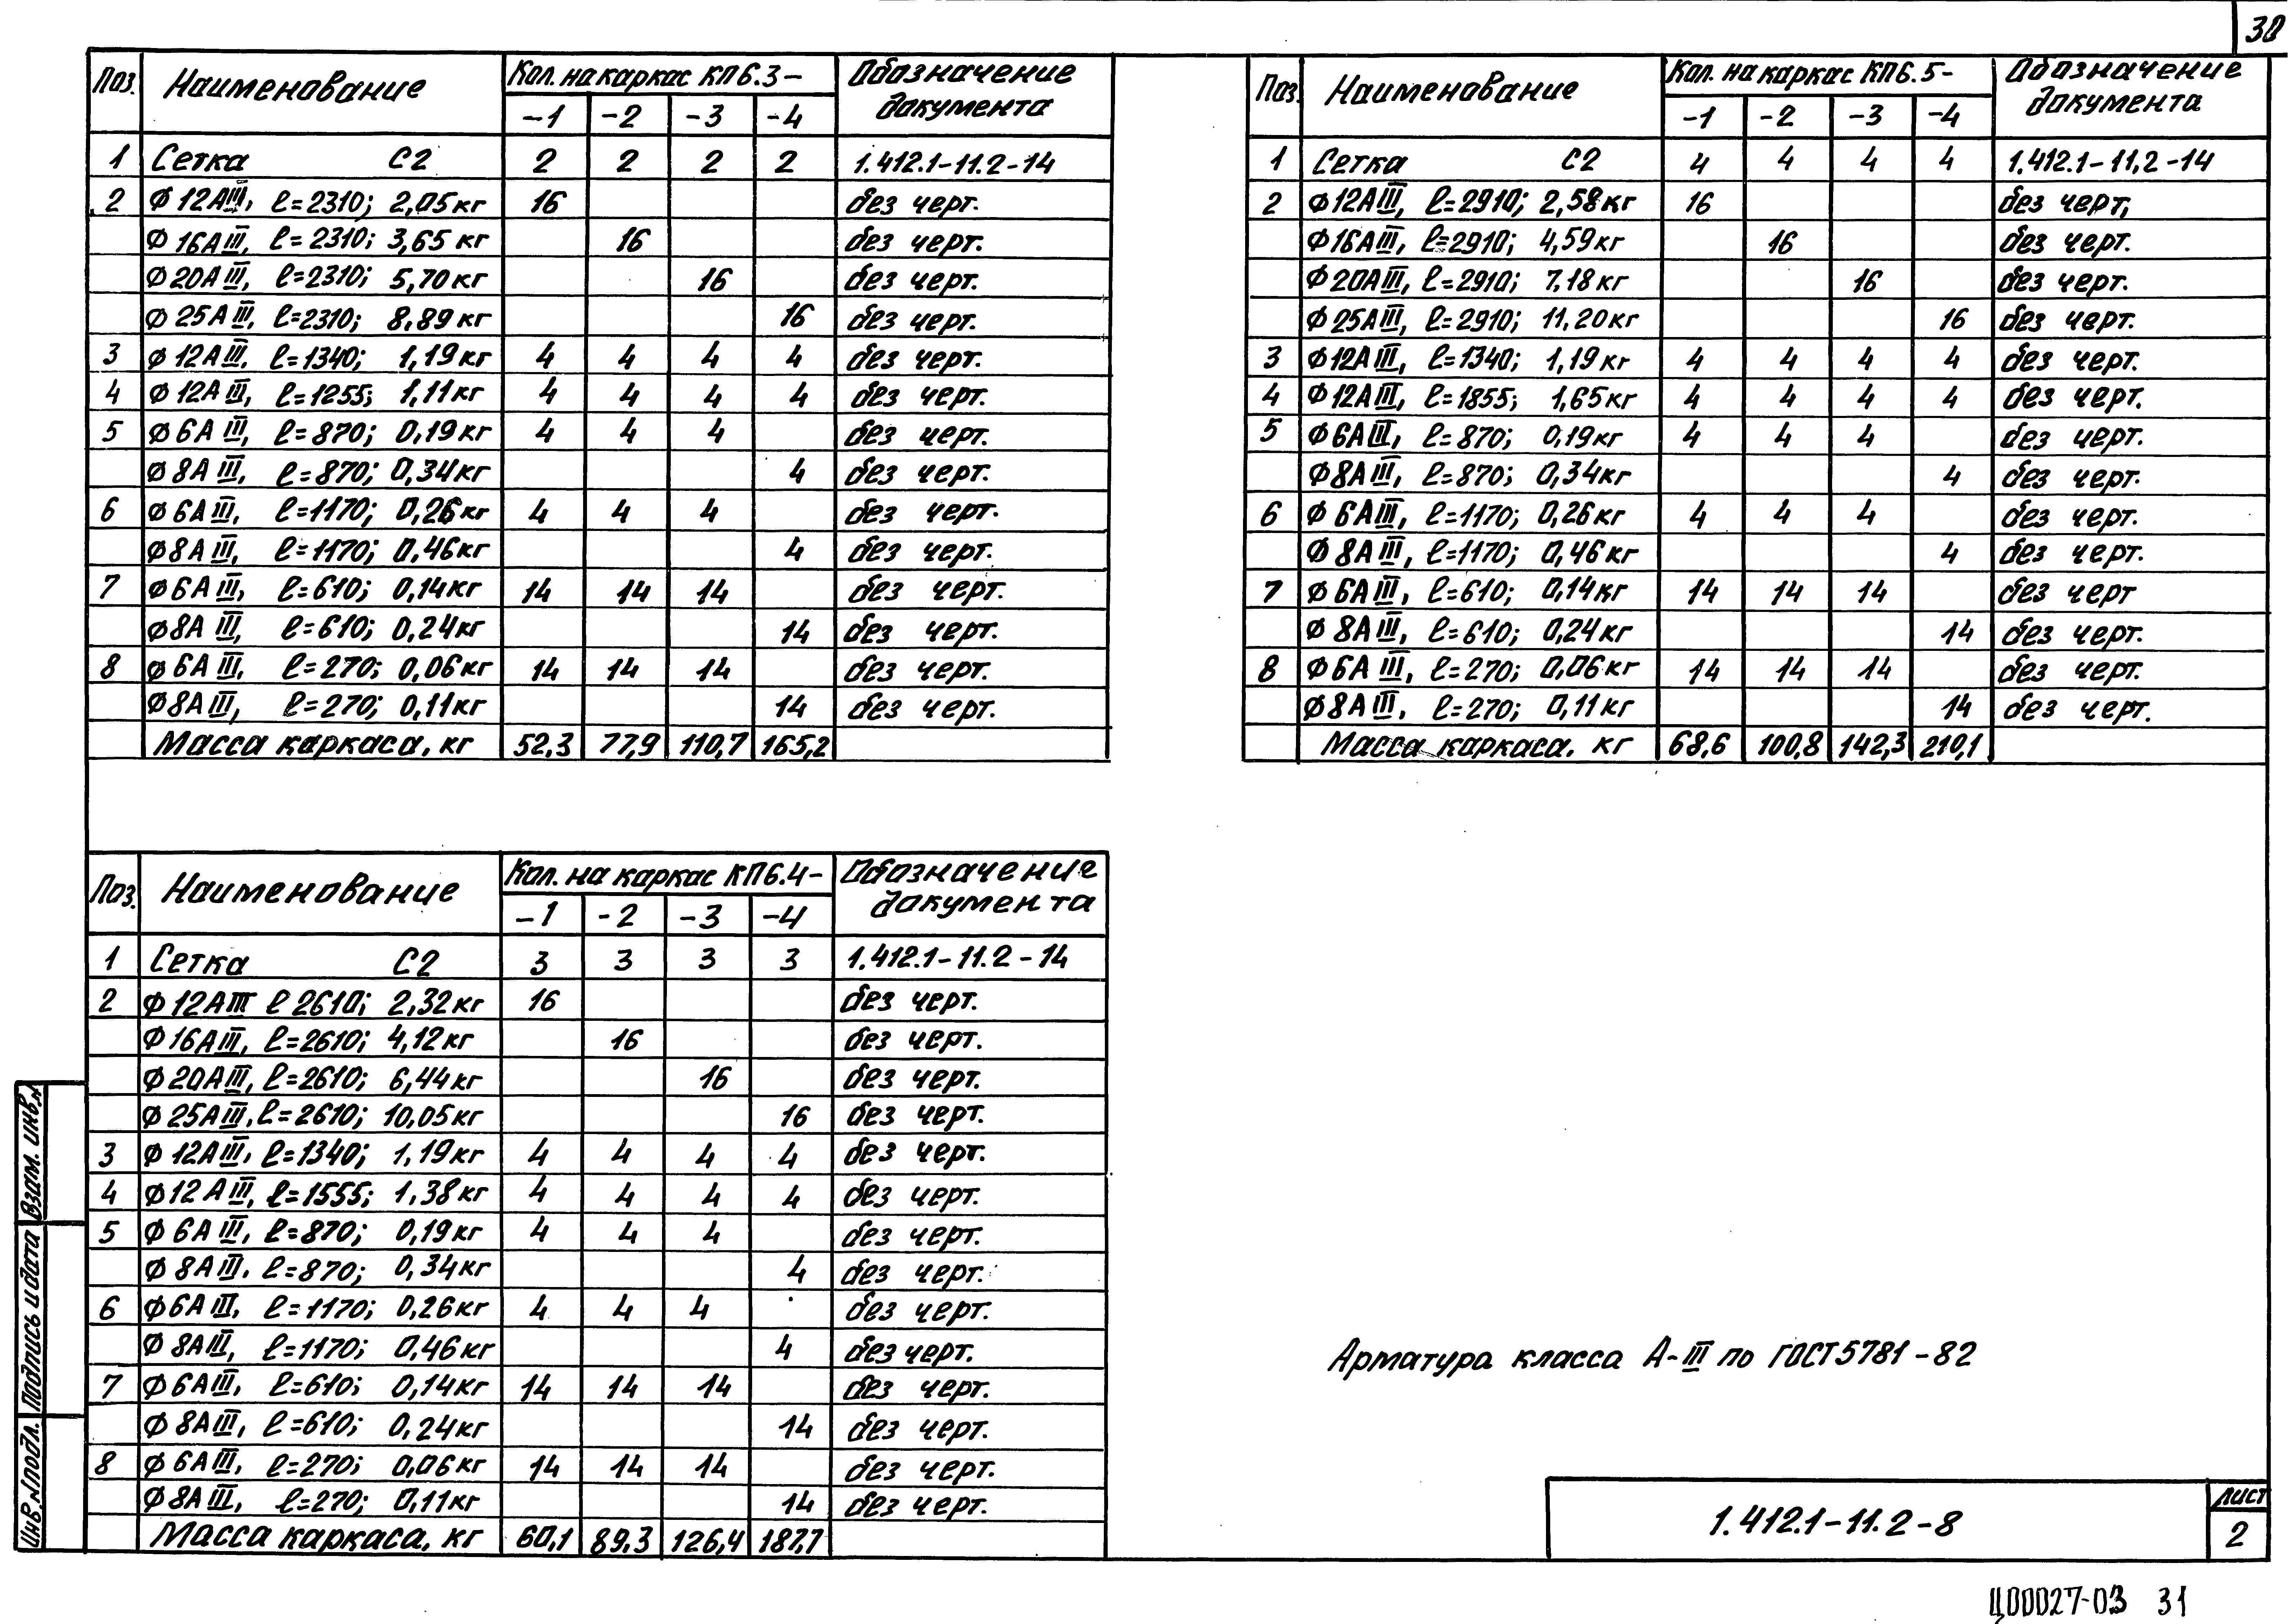 30
Поз. Наименование Кол. на каркас КП6.3– Обозначение документа
–1 –2 –3 –4
1 Сетка С2 2 2 2 2 1.412.1–11.2–14
2 Ф12АIII, ℓ=2310; 2,05кг 16 без черт.
Ф16АIII, ℓ=2310; 3,65кг 16 без черт.
Ф20АIII, ℓ=2310; 5,70кг 16 без черт.
Ф25АIII, ℓ=2310; 8,89кг 16 без черт.
3 Ф12АIII, ℓ=1340; 1,19кг 4 4 4 4 без черт.
4 Ф12АIII, ℓ=1255; 1,11кг 4 4 4 4 без черт.
5 Ф6АIII, ℓ=870; 0,19кг 4 4 4 без черт.
Ф8АIII, ℓ=870; 0,34кг 4 без черт.
6 Ф6АIII, ℓ=1170; 0,26кг 4 4 4 без черт.
Ф8АIII, ℓ=1170; 0,46кг 4 без черт.
7 Ф6АIII, ℓ=610; 0,14кг 14 14 14 без черт.
Ф8АIII, ℓ=610; 0,24кг 14 без черт.
8 Ф6АIII, ℓ=270; 0,06кг 14 14 14 без черт.
Ф8АIII, ℓ=270; 0,11кг 14 без черт.
Масса каркаса, кг 52,3 77,9 110,7 165,2
Поз. Наименование Кол. на каркас КП6.5– Обозначение документа
–1 –2 –3 –4
1 Сетка С2 4 4 4 4 1.412.1–11,2–14
2 Ф12АIII, ℓ=2910; 2,58кг 16 без черт,
Ф16АIII, ℓ=2910; 4,59кг 16 без черт.
Ф20АIII, ℓ=2910; 7,18кг 16 без черт.
Ф25АIII, ℓ=2910; 11,20кг 16 без черт.
3 Ф12АIII, ℓ=1340; 1,19кг 4 4 4 4 без черт.
4 Ф12АIII, ℓ=1855; 1,65кг 4 4 4 4 без черт.
5 Ф6АIII, ℓ=870; 0,19кг 4 4 4 без черт.
Ф8АIII, ℓ=870; 0,34кг 4 без черт.
6 Ф6АIII, ℓ=1170; 0,26кг 4 4 4 без черт.
Ф8АIII, ℓ=1170; 0,46кг 4 без черт.
7 Ф6АIII, ℓ=610; 0,14кг 14 14 14 без черт
Ф8АIII, ℓ=610; 0,24кг 14 без черт.
8 Ф6АIII, ℓ=270; 0,06кг 14 14 14 без черт.
Ф8АIII, ℓ=270; 0,11кг 14 без черт.
Масса каркаса, кг 68,6 100,8 142,3 210,1
Поз. Наименование Кол. на каркас КП6.4– Обозначение документа
–1 –2 –3 –4
1 Сетка С2 3 3 3 3 1.412.1–11.2–14
2 Ф12АIII ℓ 2610; 2,32кг 16 без черт.
Ф16АIII, ℓ=2610; 4,12кг 16 без черт.
Ф20АIII, ℓ=2610; 6,44кг 16 без черт.
Ф25АIII, ℓ=2610; 10,05кг 16 без черт.
3 Ф12АIII, ℓ=1340; 1,19кг 4 4 4 4 без черт.
4 Ф12АIII, ℓ=1555; 1,38кг 4 4 4 4 без черт.
5 Ф6АIII, ℓ=870; 0,19кг 4 4 4 без черт.
Ф8АIII, ℓ=870; 0,34кг 4 без черт.
6 Ф6АIII, ℓ=1170; 0,26кг 4 4 4 без черт.
Ф8АIII, ℓ=1170; 0,46кг 4 без черт.
7 Ф6АIII, ℓ=610; 0,14кг 14 14 14 без черт.
Ф8АIII, ℓ=610; 0,24кг 14 без черт.
8 Ф6АIII, ℓ=270; 0,06кг 14 14 14 без черт.
Ф8АIII, ℓ=270; 0,11кг 14 без черт.
Масса каркаса, кг 60,1 89,3 126,4 187,7
Арматура класса А-III по ГОСТ 5781–82
1.412.1–11.2–8
Лист
2
Инв.№подл. Подпись и дата Взам. инв.№
Ц00027-03 31